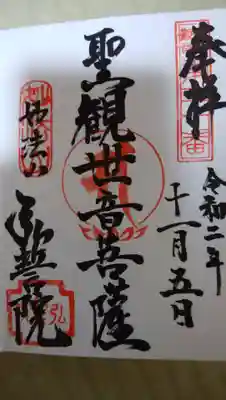 奉拝
令和二年
十一月五日
聖観世音菩薩
妙法山
弘誓院
弘